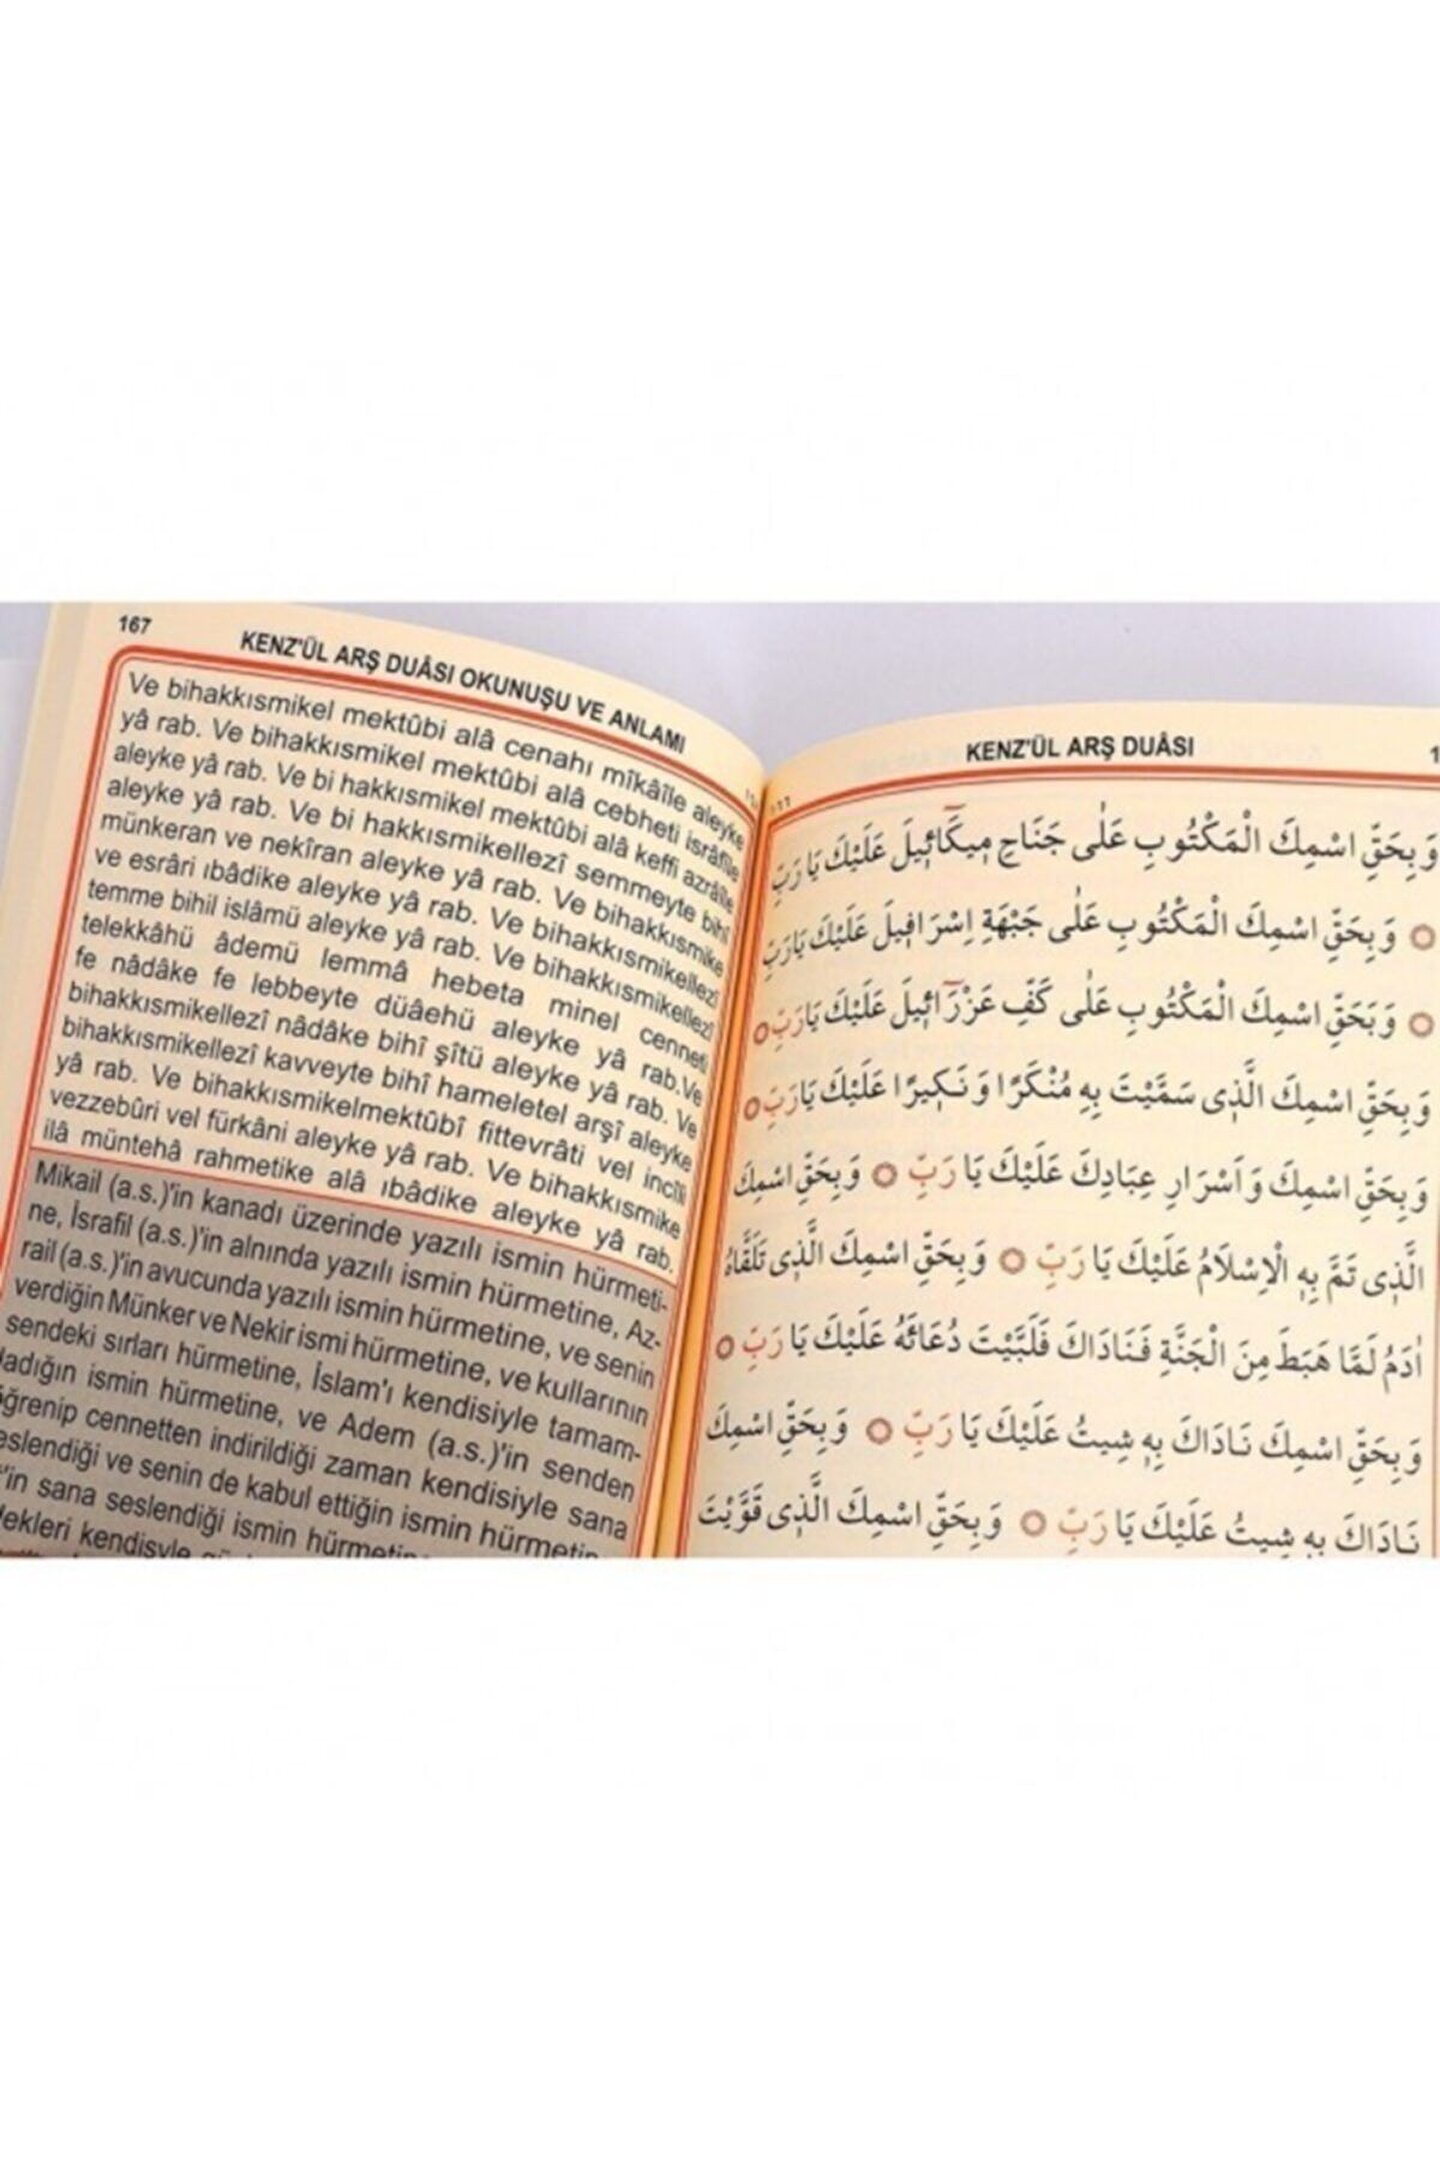 167
KENZ'ÜL ARŞ DUÂSI OKUNUŞU VE ANLAMI
Ve bihakkısmikel mektûbi alâ cenahı mîkâîle aleyke
yâ rab. Ve bihakkısmikel mektûbi alâ cebheti isrâfîle
aleyke yâ rab. Ve bi hakkısmikel mektûbi alâ keffi azrâîle
aleyke yâ rab. Ve bi hakkısmikellezî semmeyte bihî
münkeran ve nekîran aleyke yâ rab. Ve bihakkısmike
ve esrâri ıbâdike aleyke yâ rab. Ve bihakkısmikellezî
temme bihil islâmü aleyke yâ rab. Ve bihakkısmikellezî
telekkâhü âdemü lemmâ hebeta minel cenneti
fe nâdâke fe lebbeyte düâehü aleyke yâ rab.Ve
bihakkısmikellezî nâdâke bihî şîtü aleyke yâ rab. Ve
bihakkısmikellezî kavveyte bihî hameletel arşî aleyke
yâ rab. Ve bihakkısmikelmektûbî fittevrâti vel incîli
vezzebûri vel fürkâni aleyke yâ rab. Ve bihakkısmike
ilâ müntehâ rahmetike alâ ıbâdike aleyke yâ rab.
Mikail (a.s.)'in kanadı üzerinde yazılı ismin hürmeti-
ne, İsrafil (a.s.)'in alnında yazılı ismin hürmetine, Az-
rail (a.s.)'in avucunda yazılı ismin hürmetine, ve senin
verdiğin Münker ve Nekir ismi hürmetine, ve kullarının
sendeki sırları hürmetine, İslam'ı kendisiyle tamam-
ladığın ismin hürmetine, ve Adem (a.s.)'in senden
öğrenip cennetten indirildiği zaman kendisiyle sana
seslendiği ve senin de kabul ettiğin ismin hürmetin
'in sana seslendiği ismin hürmetin
kendisyle
KENZ'ÜL ARŞ DUÂSI
وَبِحَقِّ اسْمِكَ الْمَكْتُوبِ عَلٰى جَنَاحِ مِيكَآئِيلَ عَلَيْكَ يَا رَبِّ
وَبِحَقِّ اسْمِكَ الْمَكْتُوبِ عَلٰى جَبْهَةِ اِسْرَافِيلَ عَلَيْكَ يَارَبِّ
وَبَحَقِّ اسْمِكَ الْمَكْتُوبِ عَلٰى كَفِّ عَزْرَآئِيلَ عَلَيْكَ يَارَبِّ
وَبِحَقِّ اسْمِكَ الَّذِى سَمَّيْتَ بِهِ مُنْكَرًا وَنَكِيرًا عَلَيْكَ يَارَبِّ
وَبِحَقِّ اسْمِكَ وَاَسْرَارِ عِبَادِكَ عَلَيْكَ يَا رَبِّ وَبِحَقِّ اسْمِكَ
الَّذِى تَمَّ بِهِ الْاِسْلَامُ عَلَيْكَ يَا رَبِّ وَبِحَقِّ اسْمِكَ الَّذِى تَلَقَّاهُ
اٰدَمُ لَمَّا هَبَطَ مِنَ الْجَنَّةِ فَنَادَاكَ فَلَبَّيْتَ دُعَائَهُ عَلَيْكَ يَا رَبِّ
وَبِحَقِّ اسْمِكَ نَادَاكَ بِهِ شِيتُ عَلَيْكَ يَا رَبِّ وَبِحَقِّ اسْمِكَ
نَادَاكَ بِهِ شِيتُ عَلَيْكَ يَا رَبِّ وَبِحَقِّ اسْمِكَ الَّذِى قَوَّيْتَ